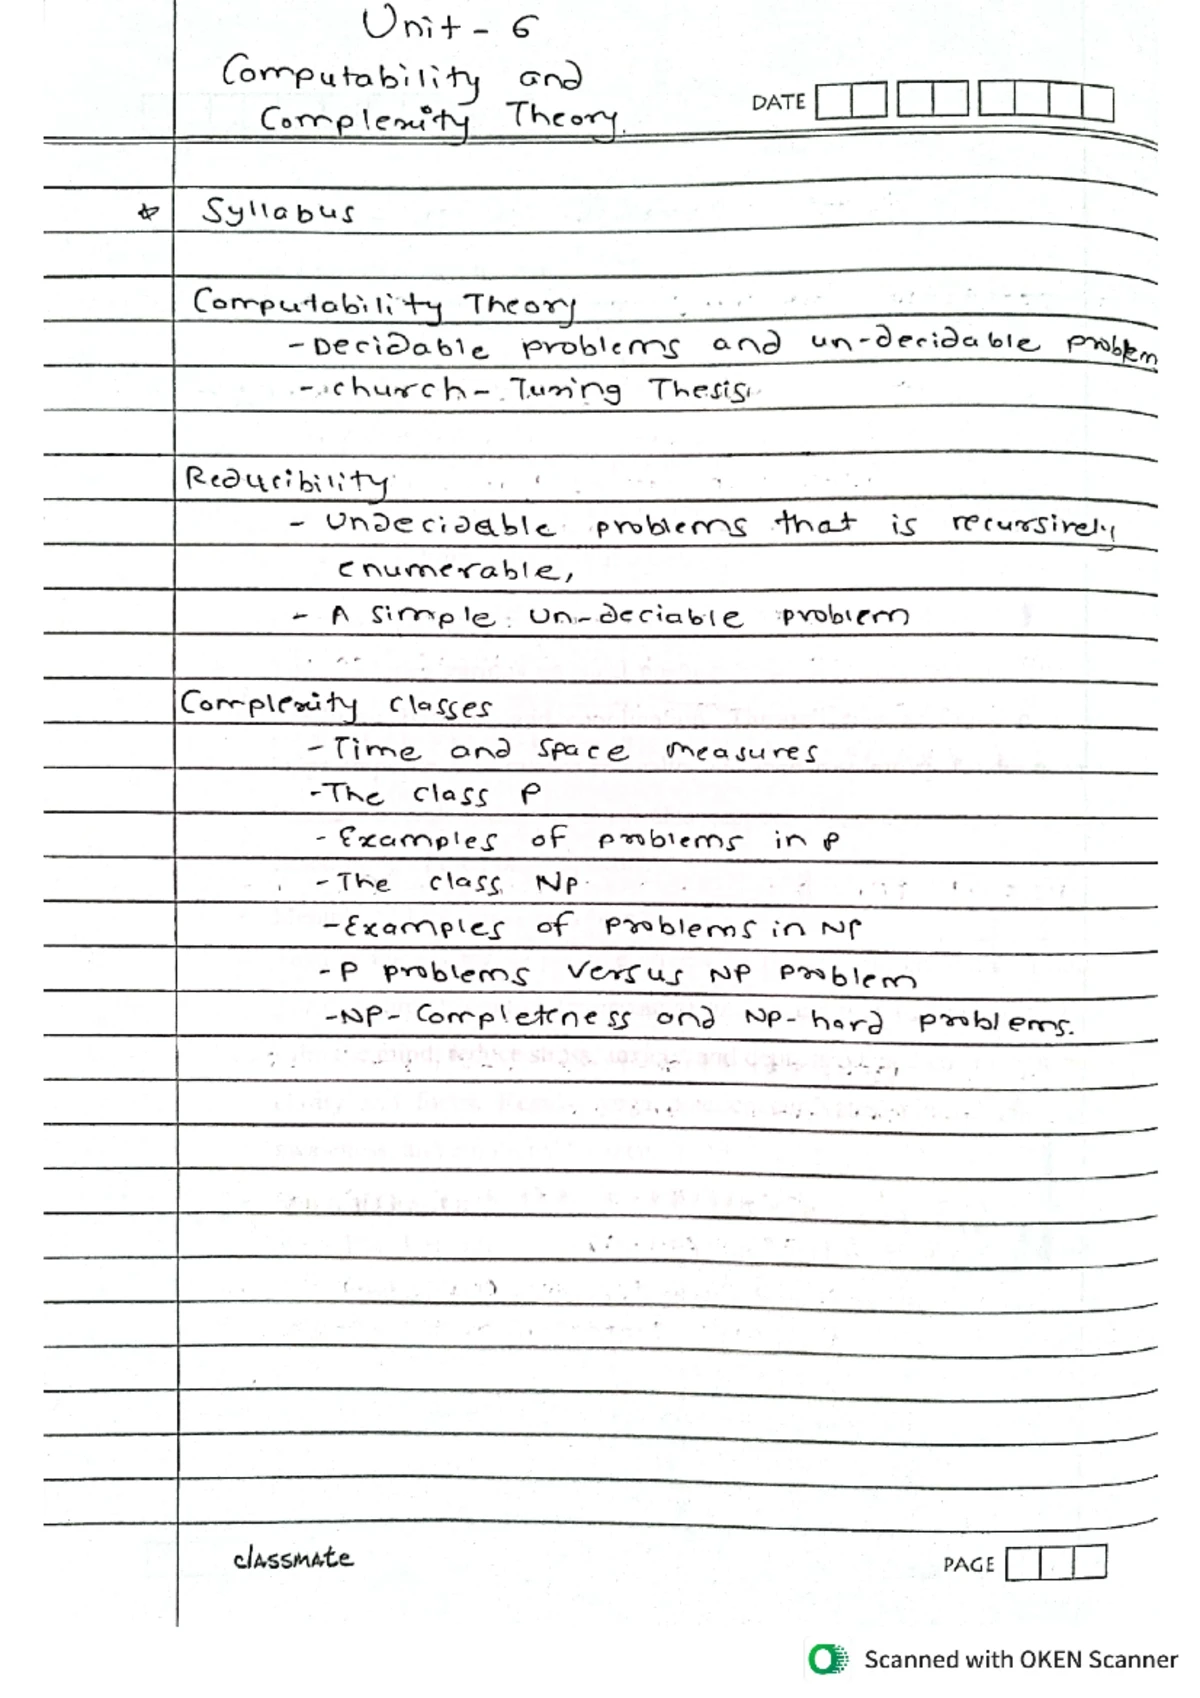 Unit - 6
Computability and
Complexity Theory.
DATE
☆ Syllabus
Computability Theory
- Decidable problems and un-decidable problem
- church - Turing Thesis.
Reducibility
- Undecidable problems that is recursively
enumerable,
- A simple un-deciable problem
Complexity classes
- Time and space measures
- The class P
- Examples of problems in P
- The class NP.
- Examples of problems in NP
- P problems versus NP problem
- NP- Completeness and NP-hard problems.
classmate
PAGE
Scanned with OKEN Scanner